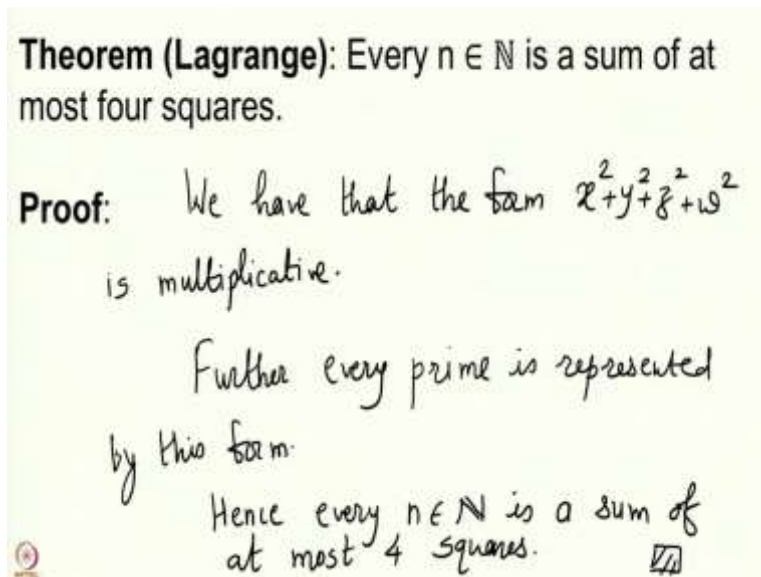 Theorem (Lagrange): Every n ∈ ℕ is a sum of at
most four squares.
Proof: We have that the form x²+y²+z²+w²
is multiplicative.
Further every prime is represented
by this form.
Hence every n ∈ ℕ is a sum of
at most 4 squares.